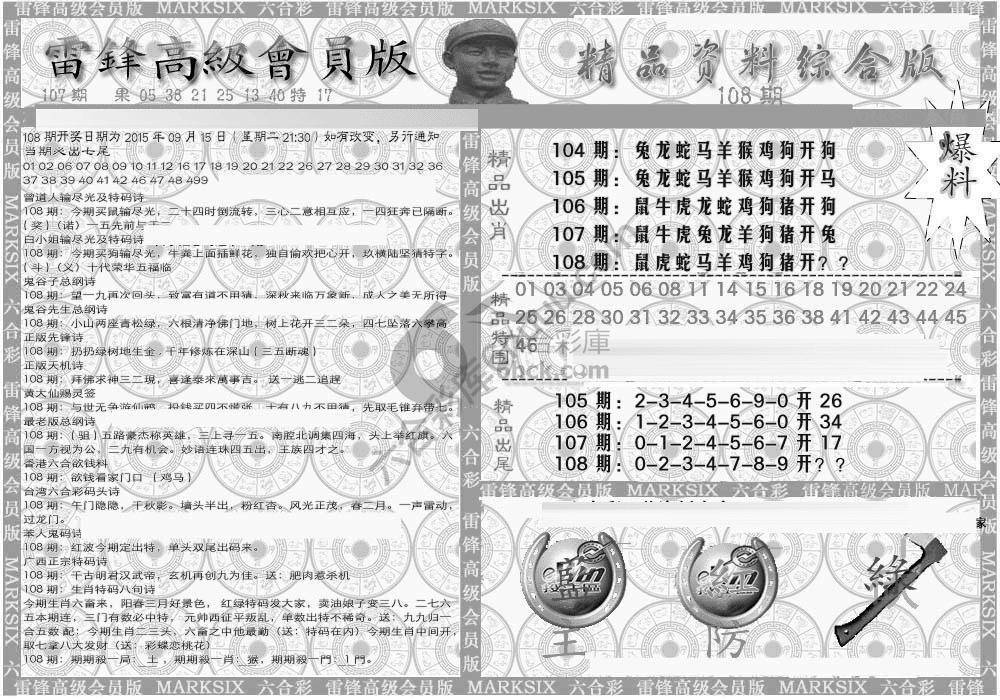 雷锋高级会员版 MARKSIX 六合彩 雷锋高级会员版 MARKSIX 六合彩 雷锋高级会员版 MARKSIX 六合彩 雷锋高级会员版
雷鋒高級會員版
精品资料综合版
107期 果 05 38 21 25 13 40 特 17
108期
爆料
108期开奖日期为2015年09月15日（星期二21:30）如有改变，另行通知
当期来出七尾
01 02 06 07 08 09 10 11 12 16 17 18 19 20 21 22 26 27 28 29 30 31 32 36
37 38 39 40 41 42 46 47 48 499
曾道人输尽光及特码诗
108期：今期买鼠输尽光，二十四时倒流转，三心二意相互应，一四狂奔已隔断。
{奖}（诺）一五先前与
白小姐输尽光及特码诗
108期：今期买狗输尽光，牛粪上面插鲜花，独自偷欢把心开，玖横陆坚猜特字。
{斗}（义）十代荣华五福临
鬼谷子总纲诗
108期：望一九再次回头，致富有道不用猜，深秋来临万象新，成人之美无所得
鬼谷先生总纲诗
108期：小山两座青松绿，六根清净佛门地，树上花开三二朵，四七坠落六攀高
正版先锋诗
108期：扔扔绿树地生金，千年修炼在深山{三五断魂}
正版天机诗
108期：拜佛求神三二現，喜逢泰來萬事吉。送一逃二追趕
黄大仙赐灵签
108期：与世无争游仙鸭，投钱买四不慌张，十有八九不用猜，先取毛锥弃带七。
最老版总纲诗
108期：{詛}五路豪杰称英雄，三上寻一五。南腔北调集四海，头上举红旗。六
国一万视为公，二九有机会。妙语连珠四五出，王族四才之。
香港六合欲钱料
108期：欲钱看家门口 {鸡马}
台湾六合彩码头诗
108期：午门隐隐，千秋影。墙头半出，粉红杏。风光正茂，春二月。一声雷动，
过龙门。
苯人鬼码诗
108期：红波今期定出特，单头双尾出码来。
广西正宗特码诗
108期：千古明君汉武帝，玄机再创九为佳。送：肥肉惹杀机
108期：生肖特码八句诗
今期生肖六畜来，阳春三月好景色， 红绿特码发大家，卖油娘子变三八。二七六
五本期连，三门有数必中特， 元帅西征平叛乱，单数出特不稀奇。送：九九归一
合五数 配：今期生肖二三头，六畜之中他最勤（送：特码在内）今期生肖中间开，
取七拿八大发财（送：彩蝶恋桃花）
108期：期期殺一局： 土，期期殺一肖：猴，期期殺一門：1門。
精品出肖
104 期：兔龙蛇马羊猴鸡狗开狗
105 期：兔龙蛇马羊猴鸡狗开马
106 期：鼠牛虎龙蛇鸡狗猪开狗
107 期：鼠牛虎兔龙羊狗猪开兔
108 期：鼠虎蛇马羊鸡狗猪开？？
精品特围
01 03 04 05 06 08 11 14 15 16 18 19 20 21 22 24
25 26 28 30 31 32 33 34 35 36 38 41 42 43 44 45
46
彩庫
6hck.com
精品出尾
105 期：2-3-4-5-6-9-0 开 26
106 期：1-2-3-4-5-6-0 开 34
107 期：0-1-2-4-5-6-7 开 17
108 期：0-2-3-4-7-8-9 开？？
雷锋高级会员版 MARKSIX 六合彩 雷锋高级会员版
家
王
防
綠
雷锋高级会员版 MARKSIX 六合彩 雷锋高级会员版 MARKSIX 六合彩 雷锋高级会员版 MARKSIX 六合彩 雷锋高级会员版